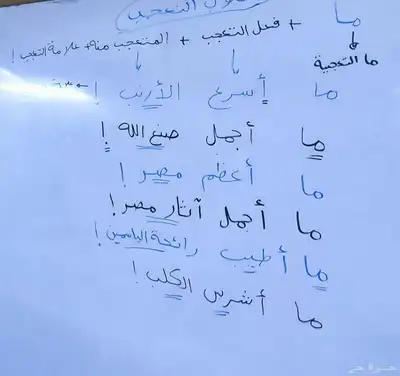 التعجب
ما + فعل التعجب + المتعجب منه + علامة التعجب !
ما التعجبية
ما أسرع الأرنب !
ما أجمل صنع الله !
ما أعظم مصر !
ما أجمل آثار مصر !
ما أطيب رائحة الياسمين !
ما أشرس الكلب !